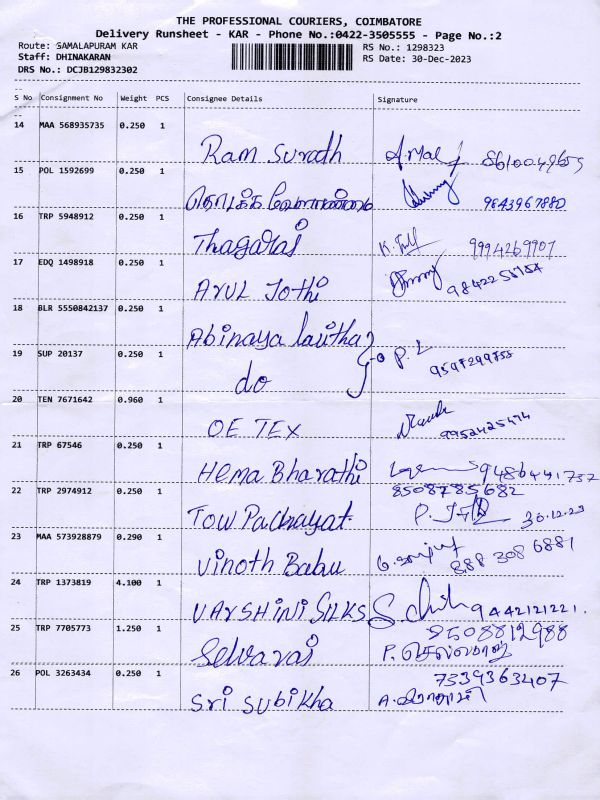 THE PROFESSIONAL COURIERS, COIMBATORE
Delivery Runsheet - KAR - Phone No.:0422-3505555 - Page No.:2
Route: SAMALAPURAM KAR RS No.: 1298323
Staff: DHINAKARAN RS Date: 30-Dec-2023
DRS No.: DCJB129832302
S No Consignment No Weight PCS Consignee Details Signature
14 MAA 568935735 0.250 1
Ram Surath
15 POL 1592699 0.250 1
9843967880
16 TRP 5948912 0.250 1
Thagaraj 9994269907
17 EDQ 1498918 0.250 1
Arul Jothi
18 BLR 5550842137 0.250 1
Abinaya lalitha
19 SUP 20137 0.250 1 P. L
do
20 TEN 7671642 0.960 1
OE TEX 9952425474
21 TRP 67546 0.250 1
Hema Bharathi 9486441737
22 TRP 2974912 0.250 1 8508785682
Tow Pachayat 30.12.23
23 MAA 573928879 0.290 1
Vinoth Babu 888 308 6881
24 TRP 1373819 4.100 1
VARSHINI SILKS 9442121221.
25 TRP 7705773 1.250 1 9508812988
Selvaraj P. செல்வராஜ்
26 POL 3263434 0.250 1 7339363407
Sri Subikha